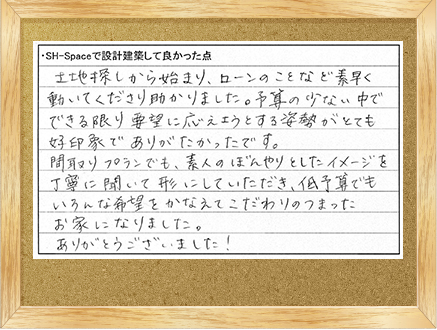 ・SH-Spaceで設計建築して良かった点
土地探しから始まり、ローンのことなど素早く
動いてくださり助かりました。予算の少ない中で
できる限り要望に応えようとする姿勢がとても
好印象でありがたかったです。
間取りプランでも、素人のぼんやりとしたイメージを
丁寧に聞いて形にしていただき、低予算でも
いろんな希望をかなえてこだわりのつまった
お家になりました。
ありがとうございました!